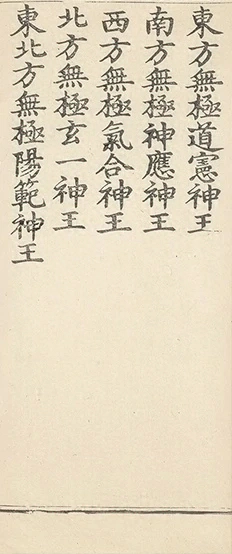 東方無極道憲神王
南方無極神應神王
西方無極氣合神王
北方無極玄一神王
東北方無極陽範神王